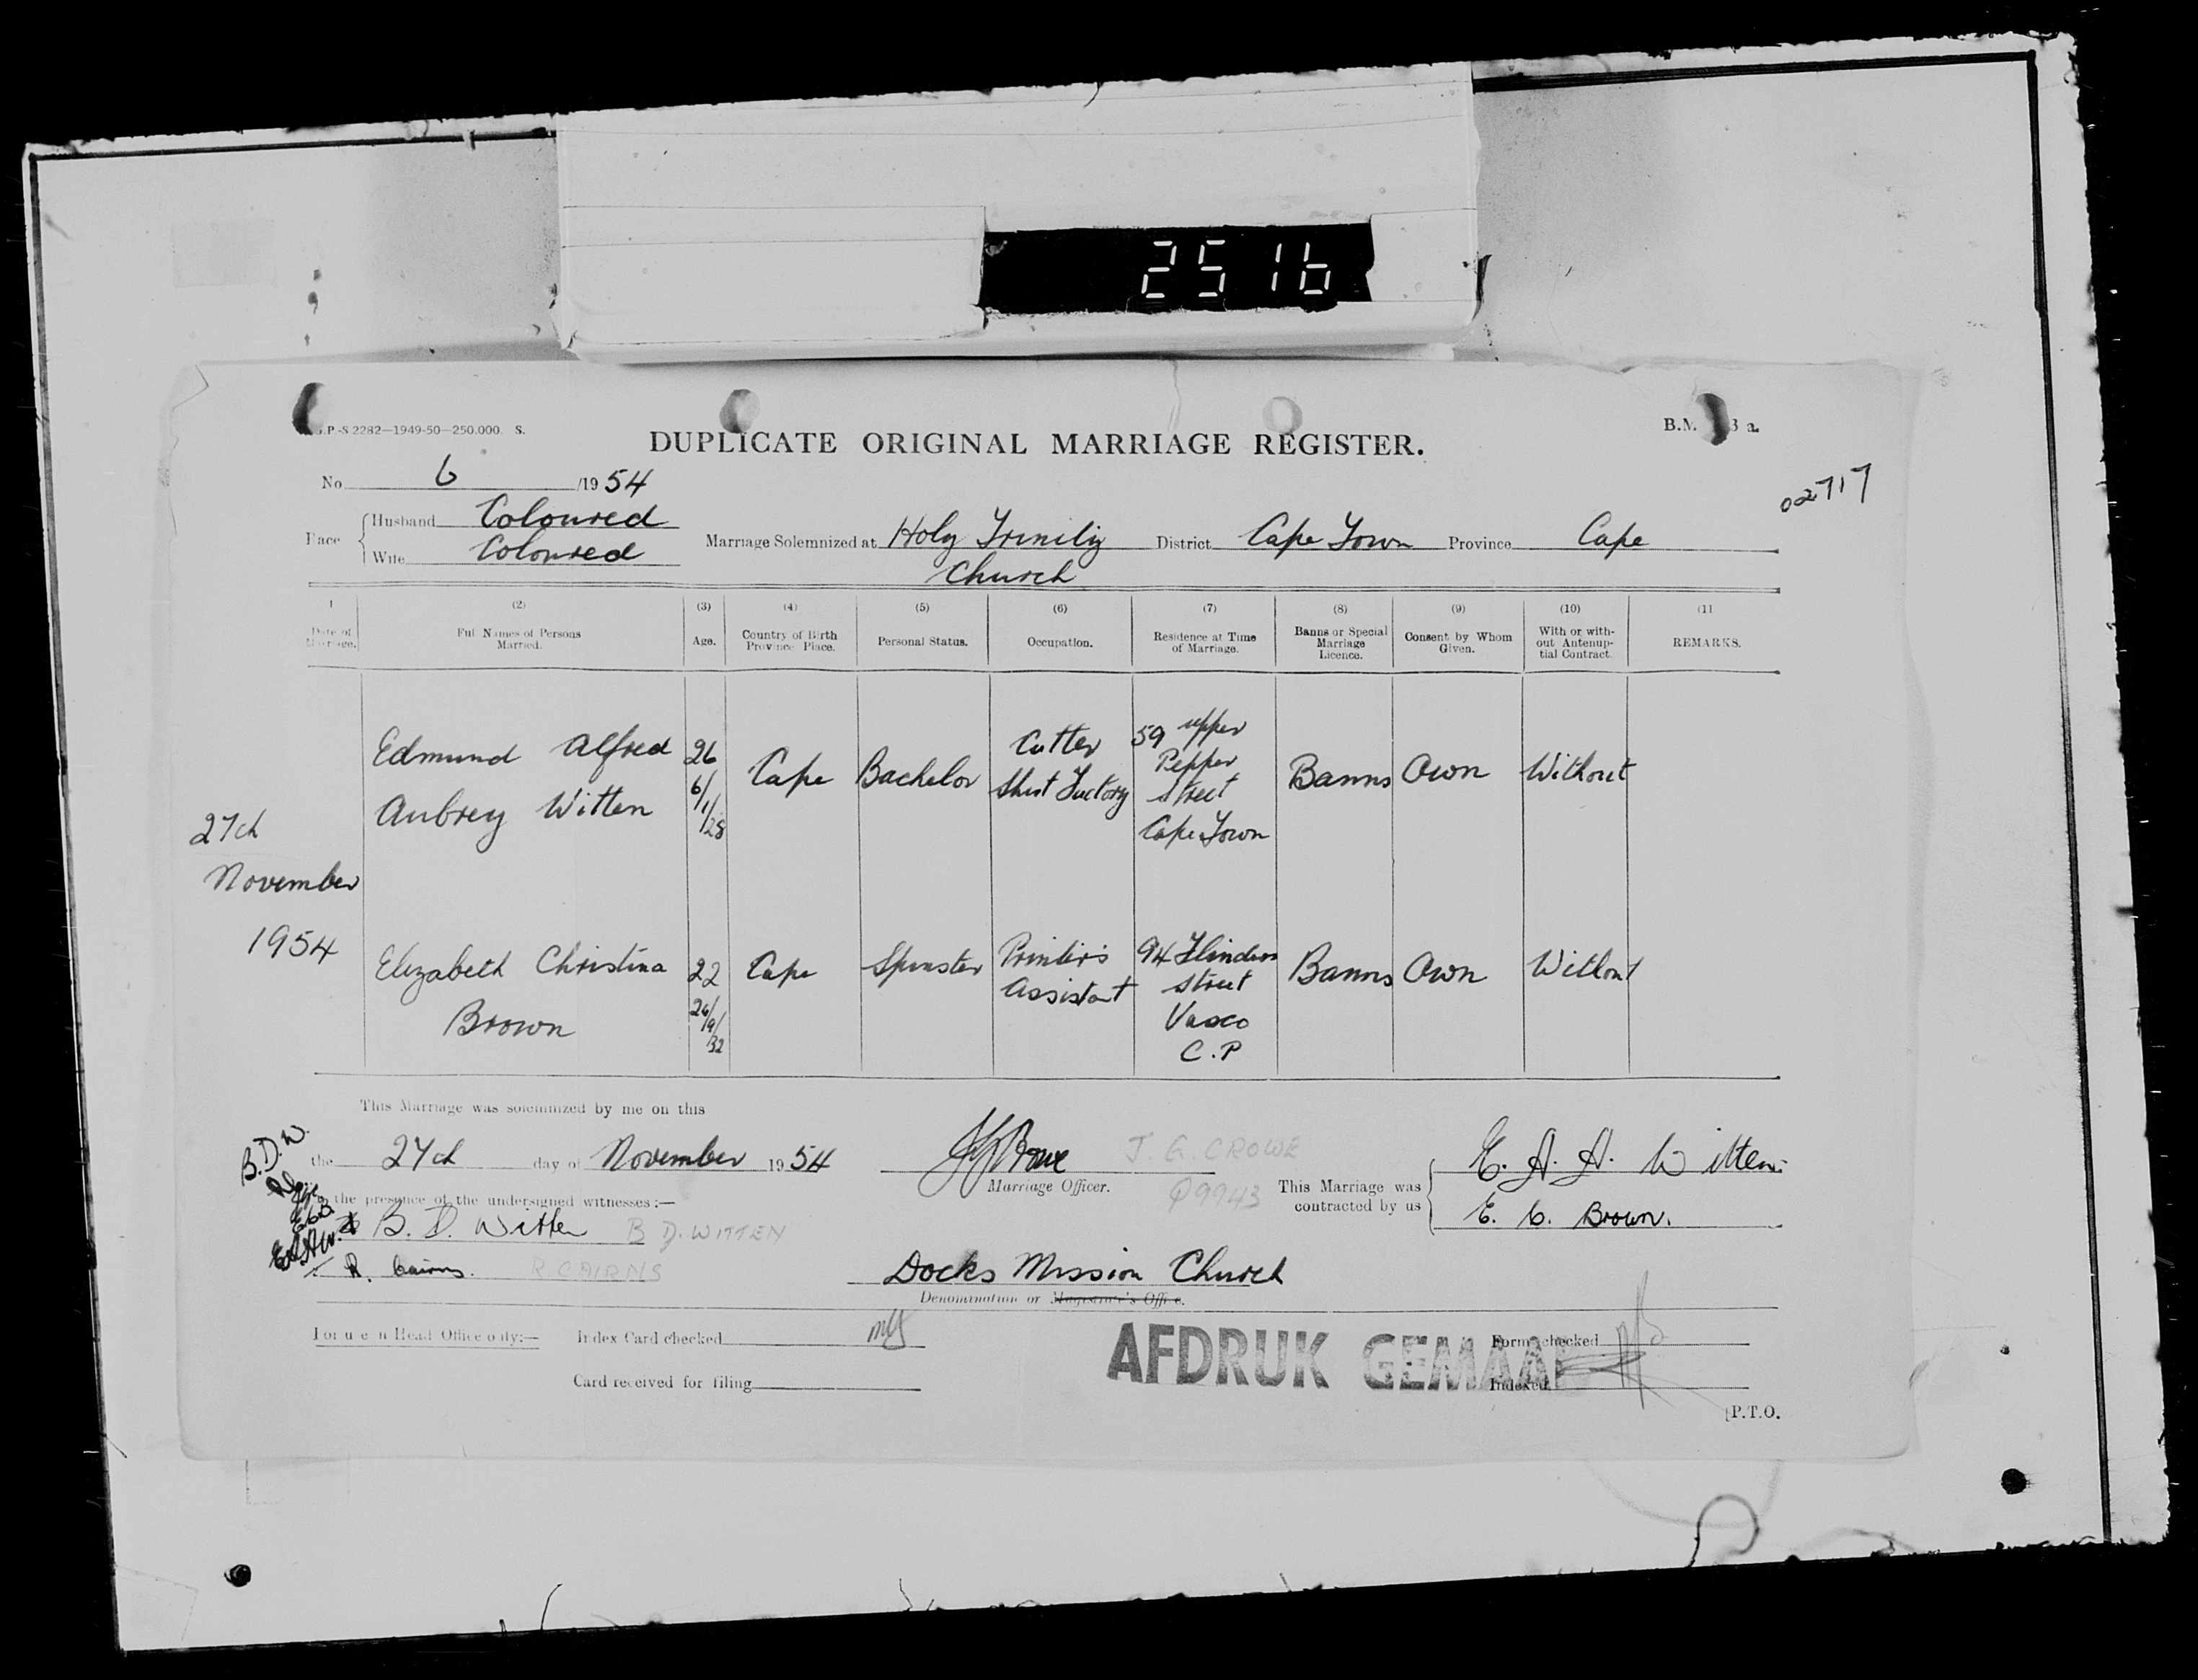 2516
G.P.-S.2282—1949-50—250.000. S.
DUPLICATE ORIGINAL MARRIAGE REGISTER.
B.M. 3 a.
No 6 /1954
02717
Race
Husband Coloured
Wife Coloured
Marriage Solemnized at Holy Trinity Church District Cape Town Province Cape
1 (2) (3) (4) (5) (6) (7) (8) (9) (10) (11
Date of Marriage.
Full Names of Persons Married.
Age.
Country of Birth Province Place.
Personal Status.
Occupation.
Residence at Time of Marriage.
Banns or Special Marriage Licence.
Consent by Whom Given.
With or with-out Antenup-tial Contract.
REMARKS.
27th
November
1954
Edmund Alfred
Aubrey Witten
26
6/1/28
Cape
Bachelor
Cutter
Shirt Factory
59 upper
Pepper
Street
Cape Town
Banns
Own
Without
Elizabeth Christina
Brown
22
26/9/32
Cape
Spinster
Printer's
Assistant
94 Flinders
Street
Vasco
C.P
Banns
Own
Without
This Marriage was solemnized by me on this
the 27th day of November 1954
B.D.W.
E.C.B.
E.A.A.W.
J. G. CROWE
Marriage Officer.
Q9943
This Marriage was
contracted by us
E. A. A. Witten
E. C. Brown.
the presence of the undersigned witnesses:—
B. D. Witten B D. WITTEN
R. Cairns. R. CAIRNS
Docks Mission Church
Denomination or Magistrate's Office.
For use in Head Office only:—
Index Card checked
Card received for filing
AFDRUK GEMAAK
Form checked
Indexed
[P.T.O.